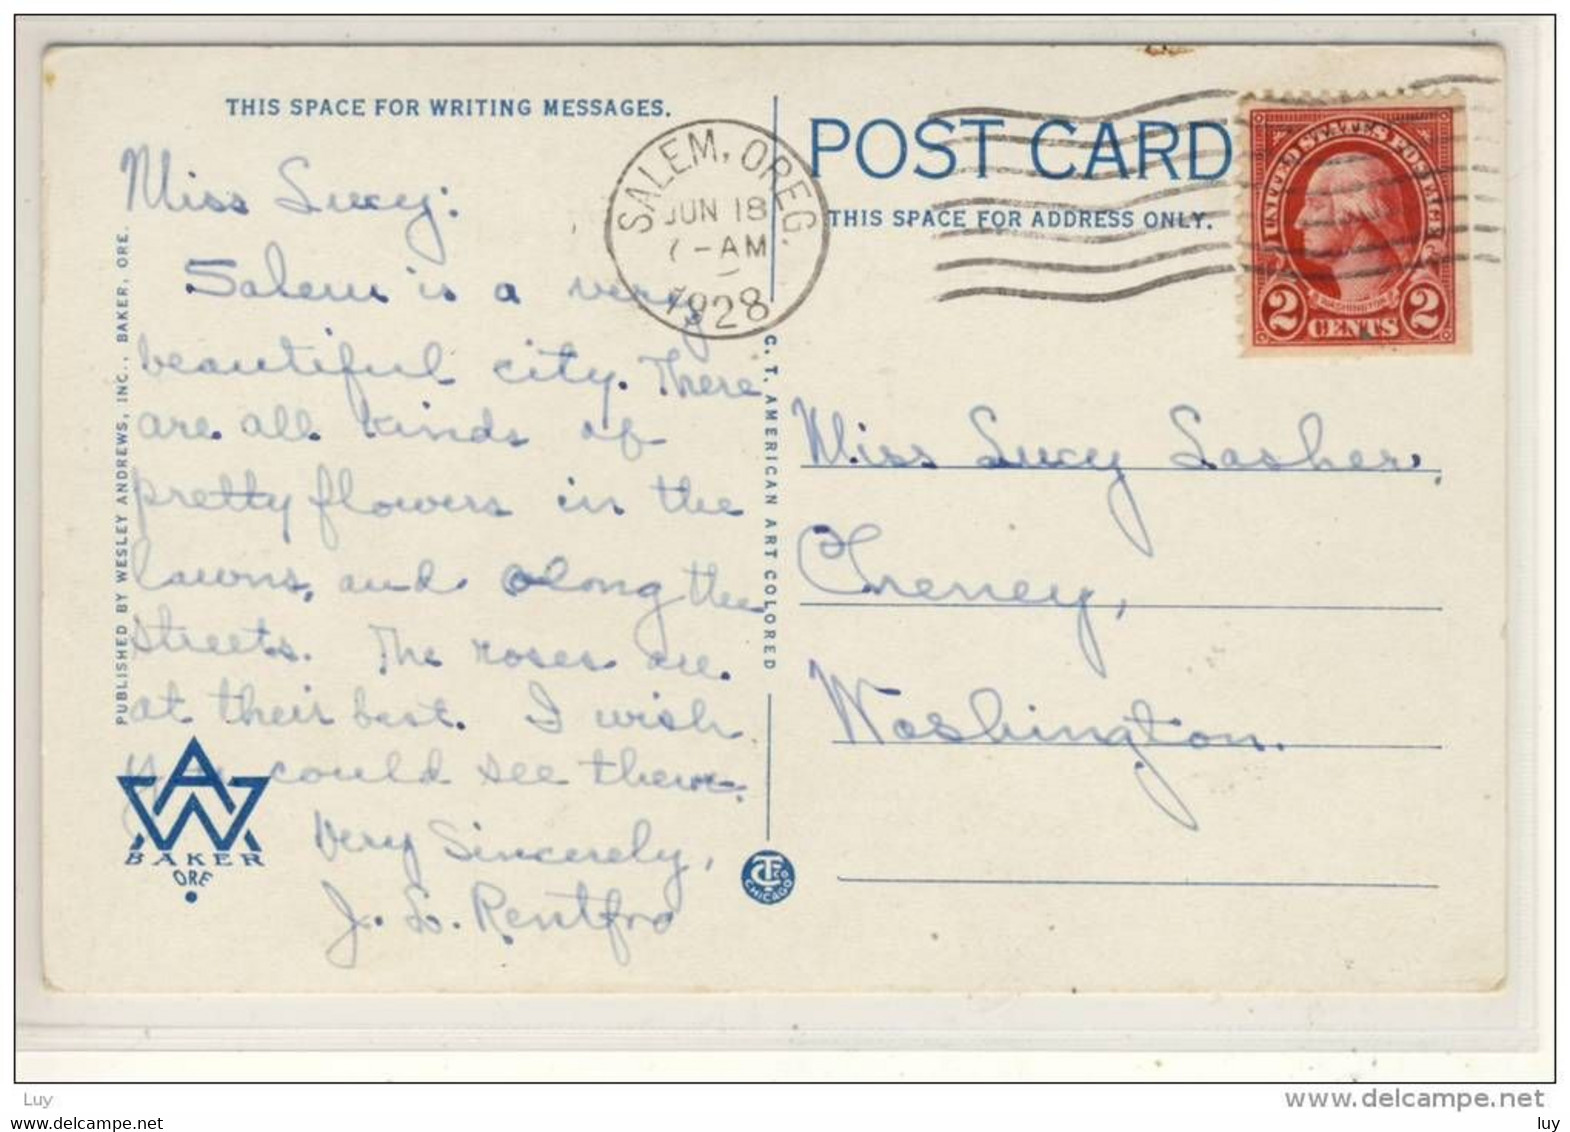 THIS SPACE FOR WRITING MESSAGES.
Miss Lucy:
Salem is a very
beautiful city. There
are all kinds of
pretty flowers in the
lawns, and along the
streets. The roses are
at their best. I wish
you could see them.
Very Sincerely,
J. L. Rentfro
PUBLISHED BY WESLEY ANDREWS, INC., BAKER, ORE.
AW
BAKER
ORE
SALEM, OREG.
JUN 18
7-AM
1928
C. T. AMERICAN ART COLORED
CT CO
CHICAGO
POST CARD
THIS SPACE FOR ADDRESS ONLY.
UNITED STATES POSTAGE
WASHINGTON
2 CENTS 2
Miss Lucy Lasher,
Cheney,
Washington.
Luy
www.delcampe.net
luy
luy